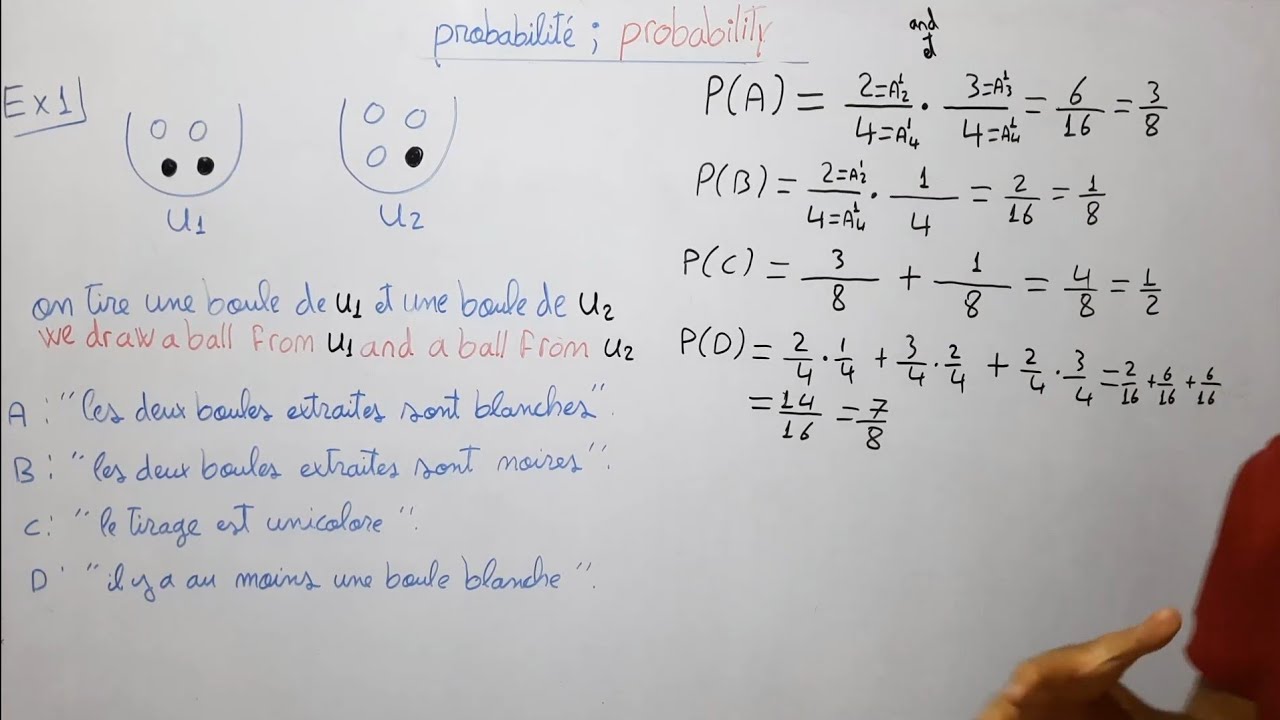 probabilité ; probability
Ex1
U1 U2
on tire une boule de U1 et une boule de U2
we draw a ball from U1 and a ball from U2
A : "les deux boules extraites sont blanches".
B : "les deux boules extraites sont noires".
C : "le tirage est unicolore".
D : "il y a au moins une boule blanche".
and
et
P(A) = 2=A¹₂/4=A¹₄ · 3=A¹₃/4=A¹₄ = 6/16 = 3/8
P(B) = 2=A¹₂/4=A¹₄ · 1/4 = 2/16 = 1/8
P(C) = 3/8 + 1/8 = 4/8 = 1/2
P(D) = 2/4 · 1/4 + 3/4 · 2/4 + 2/4 · 3/4 = 2/16 + 6/16 + 6/16
= 14/16 = 7/8